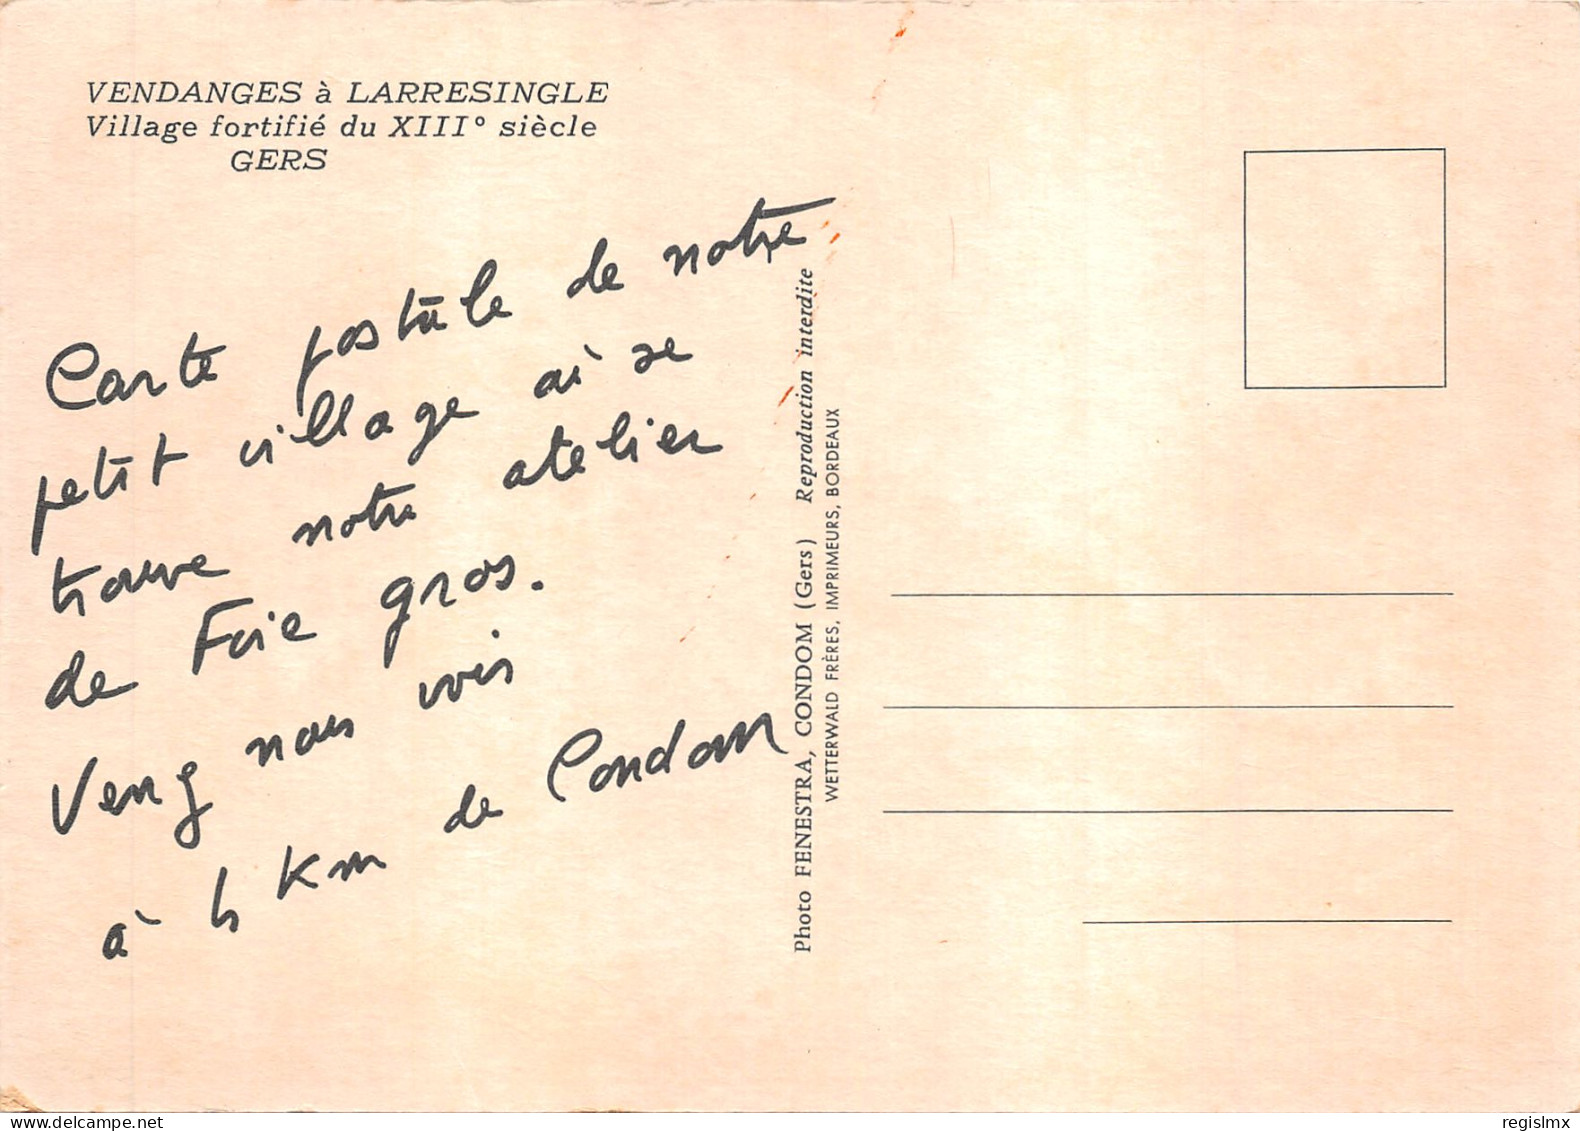 VENDANGES à LARRESINGLE
Village fortifié du XIII° siècle
GERS
Carte postale de notre
petit village où se
trouve notre atelier
de Foie gras.
Venez nous voir
à 4 km de Condom
Photo FENESTRA, CONDOM (Gers) Reproduction interdite
WETTERWALD FRÈRES, IMPRIMEURS, BORDEAUX
www.delcampe.net
regislmx